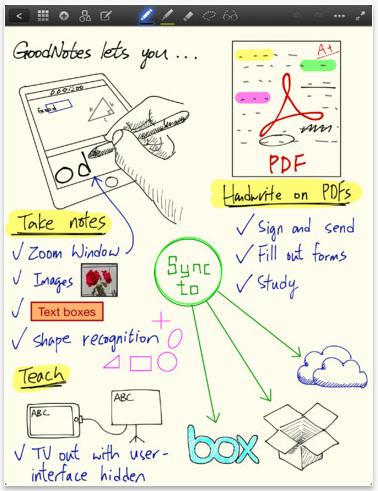 GoodNotes lets you ...
Good
od
A+
PDF
Handwrite on PDFs
✓ Sign and send
✓ Fill out forms
✓ Study
Take notes
✓ Zoom Window
✓ Images
✓ Text boxes
✓ Shape recognition
Sync
to
Teach
ABC
ABC
✓ TV out with user-
interface hidden
box